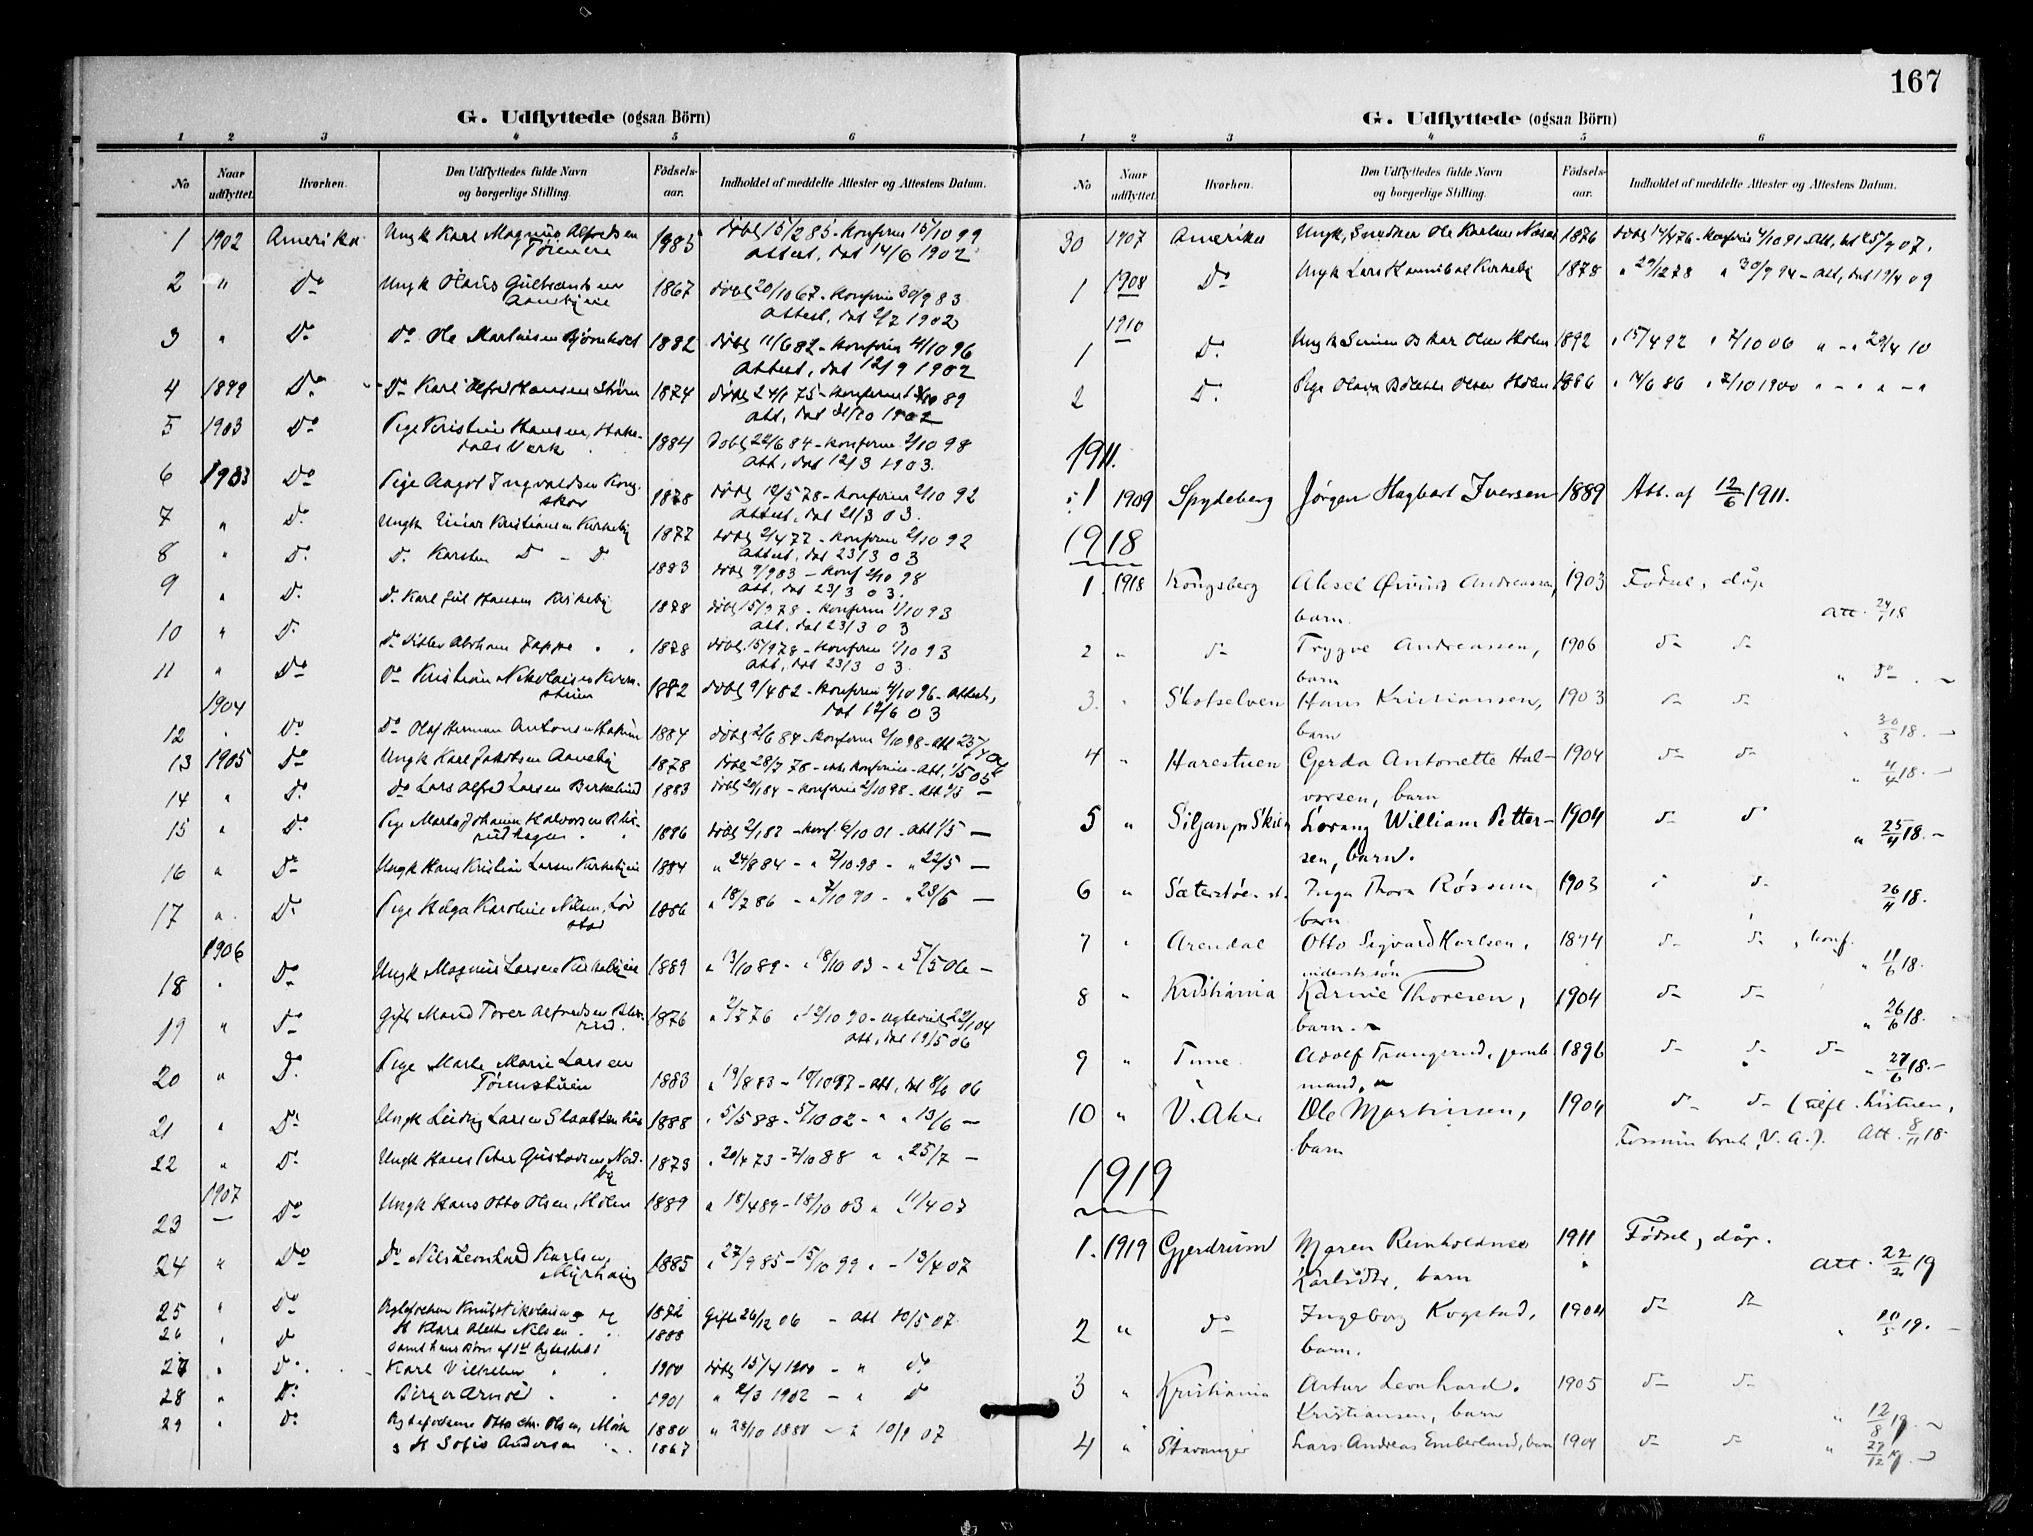 167
G. Udflyttede (ogsaa Börn)
1 2 3 4 5 6
No Naar udflyttet. Hvorhen. Den Udflyttedes fulde Navn og borgerlige Stilling. Fødselsaar. Indholdet af meddelte Attester og Attestens Datum.
1 1902 Amerika Ungk Karl Magnus Alfredsen 1885 döbt 15/2 85 - Konfirm 15/10 99
Attest, dat 14/6 1902
2 " Do Ungk Olaus Gulbrandsen 1867 döbt 20/10 67 - Konfirm 30/9 83
Attest, dat 2/7 1902
3 " Do Do Ole Martinsen Bjørnholt 1882 döbt 11/6 82 - Konfirm 4/10 96
Attest, dat 12/9 1902
4 1899 Do Do Karl Alfred Hansen Strøm 1874 döbt 24/1 75 - Konfirmt 89
Att, dat 21/10 1902
5 1903 Do Pige Kristine Hansen, Hake- 1884 Döbt 22/6 84 - Konfirm 2/10 98
dals Værk Att, dat 12/3 1903.
6 1903 Do Pige Aagot Ingvaldsen 1878 döbt 12/5 78 - Konfirm 2/10 92
Attest, dat 21/3 03.
7 " Do Ungk Einar Kristiansen Kirkeby 1877 döbt 2/4 77 - Konfirm 2/10 92
Attest, dat 23/3 03
8 " Do D. Karsten D - D. 1883 döbt 9/9 83 - Konf 2/10 98
Att, dat 23/3 03.
9 " D. D. Karl Gul Hansen Kirkeby 1878 döbt 15/9 78 - Konfirm 1/10 93
Att, dat 23/3 03
10 " D. Do Ditlev Abraham 1878 döbt 15/9 78 - Konfirm 1/10 93
Att, dat 23/3 03.
11 " Do Do Kristian Nikolaisen Kvern- 1882 döbt 9/4 82 - Konfirm 4/10 96 - Attest,
stuen dat 12/6 03
1904
12 " Do Do Olaf Herman Antonsen 1884 döbt 2/6 84 - Konfirm 2/10 98 - att
13 1905 Do Ungk Karl Jakobsen Aaneby 1878 döbt 28/7 78 - Konfirm - Att,
14 " Do Do Lars Alfred Larsen Birkelund 1883
15 " Do Pige Marta Johanne Halvorsen 1886
16 " Do Ungk Hans Kristian Larsen Kirkebyeie 1884 " 24/8 84 - " 2/10 98 - " 22/5 —
17 " D. Pige Helga Karoline Nilsen, 1886 " 18/7 86 - - " 23/5 —
1906
18 " Do Ungk Magnus Larsen Kirkebyeie 1889 " 13/10 89 - " 18/10 03 - " 5/5 06 -
19 " Do Gift Mand Torer Alfredsen 1876
att, dat 19/5 06
20 " D. Pige Marte Marie Larsen 1883 " 19/8 83 - 10/10 97 - att, dat 8/6 06
Tørenstuen
21 " Do Ungk Ludvig Larsen 1888 " 5/5 88 - 5/10 02 - " " 13/6 —
22 " D. Ungk Hans Peter Gustavsen Nordby 1873 " 20/4 73 - 7/10 88 " " 25/7 —
1907
23 Do Ungk Hans Otto Olsen, Holm 1889 " 18/4 89 - 18/10 03 " " 11/4 07
24 " Do Do Nils Leonhard Karlsen, 1885 " 27/9 85 - 15/10 99 " - 13/4 07
Myrhaug
25 " Do Knut Nikolaisen og 1872 Gift 26/12 06 - att 10/5 07
26 " D H Klara Aletta Nilsen 1888
samt hans Börn af 1ste Ægteskab:
27 " D. Karl Vilhelm 1900 döbt 15/4 1900 - " D.
28 " D. Birger Arnold 1901 " 2/3 1902 - " D
29 " D. Otto Chr. Olsen, 1880 " 28/10 1880 - " 10/9 07
& H Sofie Andersen 1867
G. Udflyttede (ogsaa Börn)
1 2 3 4 5 6
No Naar udflyttet. Hvorhen. Den Udflyttedes fulde Navn og borgerlige Stilling. Fødselsaar. Indholdet af meddelte Attester og Attestens Datum.
30 1907 Amerika Ungk, Snedker Ole 1876
1 1908 Do Ungk Lars Hannibal Kirkeby 1878 " 29/12 78 " 30/9 94 - att, dat 19/4 09
1910
1 D. Ungk Oskar Olsen Holm 1892 " 15/4 92 " 7/10 06 " - " 29/4 10
2 D. Pige Olava Olsen Holm 1886 " 14/6 86 " 7/10 1900 " - " " - "
1911.
1 1909 Spydeberg Jörgen Hagbart Iversen 1889 Att. af 12/6 1911.
1918
1. 1918 Kongsberg Aksel Øivind Andreassen, 1903 Födsel, dåp
barn. att. 18
2 " d- Trygve Andreassen, 1906 d- d-
barn " do -
3. " Skotselven Hans Kristiansen, 1903 d- d-
barn " 30/3 18. -
4 " Harestuen Gerda Antonette Hal- 1904 d- d-
vorsen, barn " 4/4 18. -
5 " Siljan pr Skien Lorang William Petter- 1904 d- d
sen, barn. " 25/4 18. -
6 " Inga Thora Røssum 1903 d-
barn 26/4 18.
7 " Arendal Otto Sigvard Karlsen, 1874 d- d-, konf.
" 11/6 18.
8 " Kristiania Karine Thoresen, 1904 d- d-
barn. - " 26/6 18.
9 " Tune. Adolf 1896 d- d- d-
mand, - " 27/6 18. -
10 " V. Aker Ole Martinsen, 1904 d- d-
barn V. A.). Att. 8/11 18.
1919
1. 1919 Gjerdrum Maren Reinholdine 1911 Födsel, dåp.
Karlsdtr, barn att. 22/2 19
2 " do Ingeborg Kogstad, 1904 d- d-
barn. " 10/5 19. -
3 " Kristiania Artur Leonhard 1905 d- d-
Kristiansen, barn " 12/8 19. -
4 " Stavanger Lars Andreas Emberland, barn 1904 d- d- " 29/12 19. -